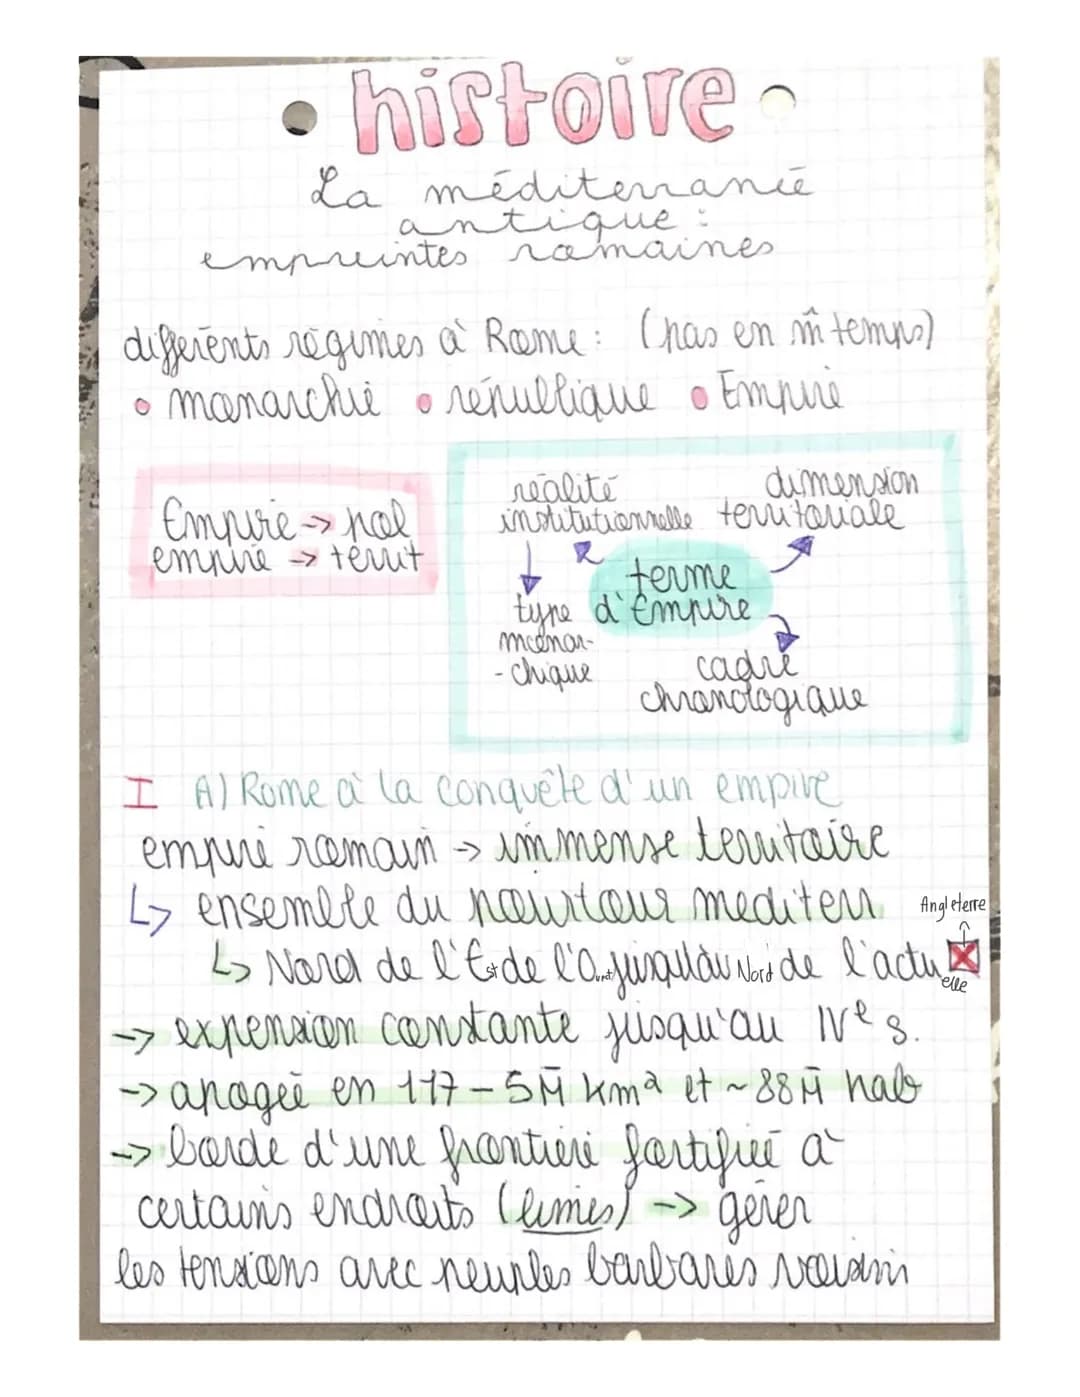 • histoire •
La méditerranée
antique :
empreintes romaines
différents régimes à Rome : (pas en m̂ temps)
• monarchie • république • Empire
Empire → pol
empire → territ
réalité
institutionnelle
dimension
territoriale
terme
d'Empire
type
monar-
-chique
cadre
chronologique
I A) Rome à la conquête d'un empire
empire romain → immense territoire
↳ ensemble du pourtour mediterr
Angleterre
↳ Nord de l'Est de l'Ouest jusqu'au Nord de l'actuelle
→ expension constante jusqu'au IVe s.
→ apogée en 117 - 5M̄ km² et ~88M̄ hab
→ borde d'une frontière fortifiée à
certains endroits (limes) → gérer
les tensions avec peuples barbares voisin